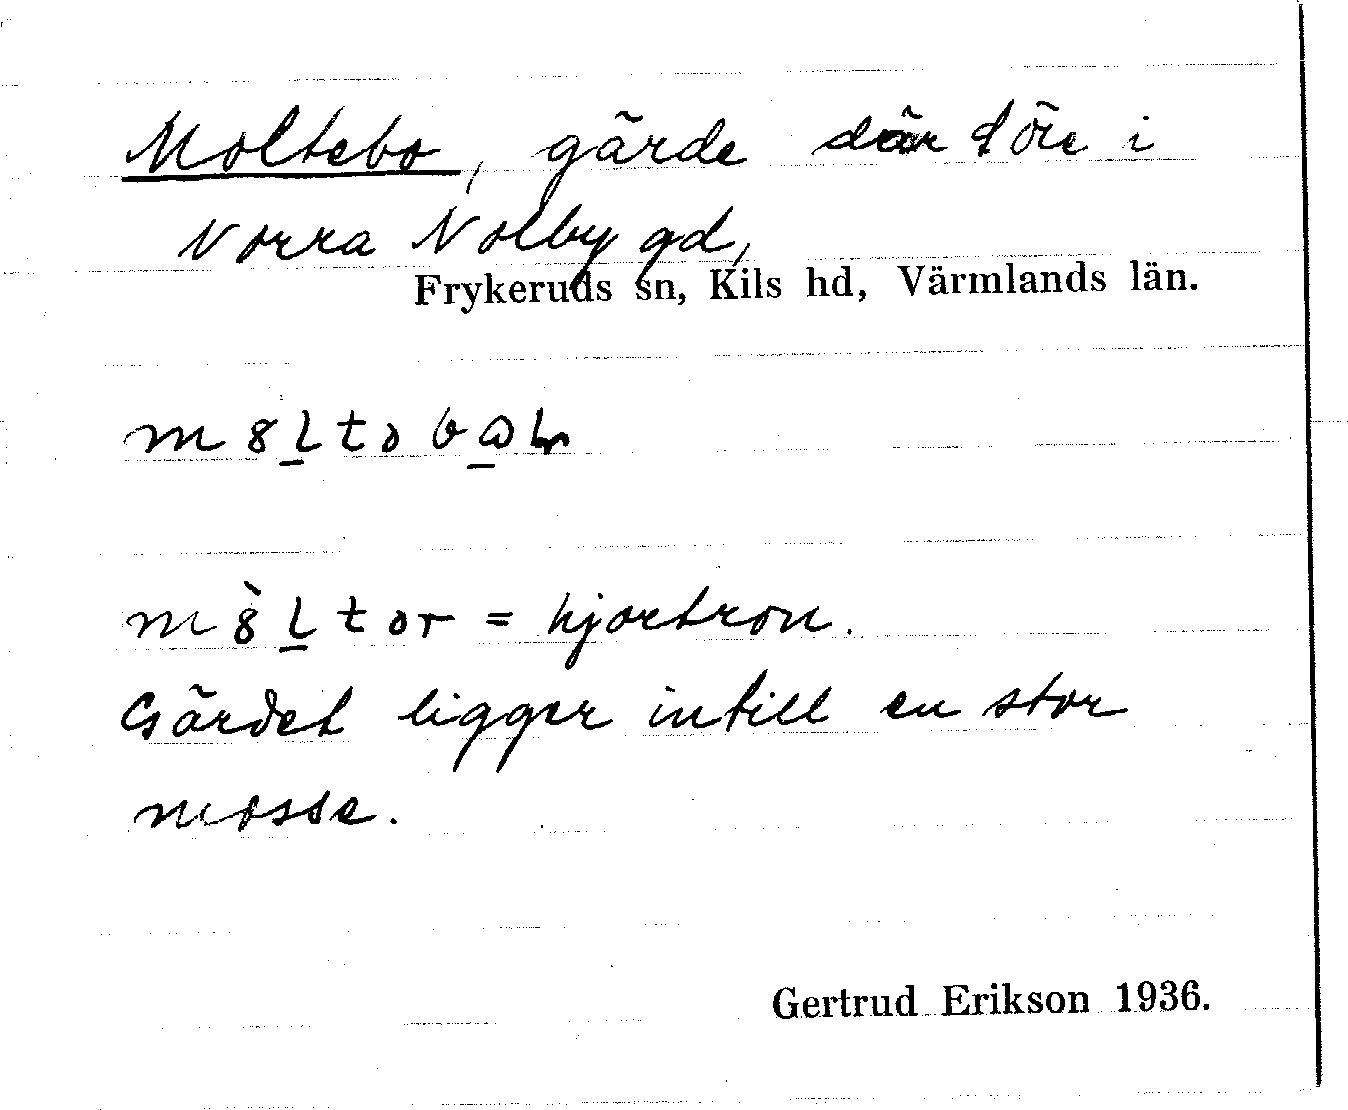 Moltebo, gärde där före i
Norra Nolby gd,
Frykeruds sn, Kils hd, Värmlands län.
= hjortron.
Gärdet ligger intill en stor
mosse.
Gertrud Erikson 1936.